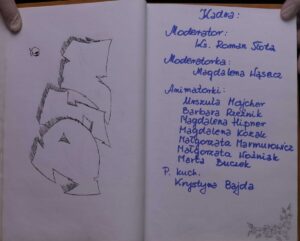 Kadra:
Moderator:
Ks. Roman Stota
Moderatorka:
Magdalena Wąsacz
Animatorki:
Urszula Majcher
Barbara Rzeźnik
Magdalena Hipner
Magdalena Kozak
Małgorzata Marmurowicz
Małgorzata Woźniak
Marta Buczek
P. kuch.
Krystyna Bajda